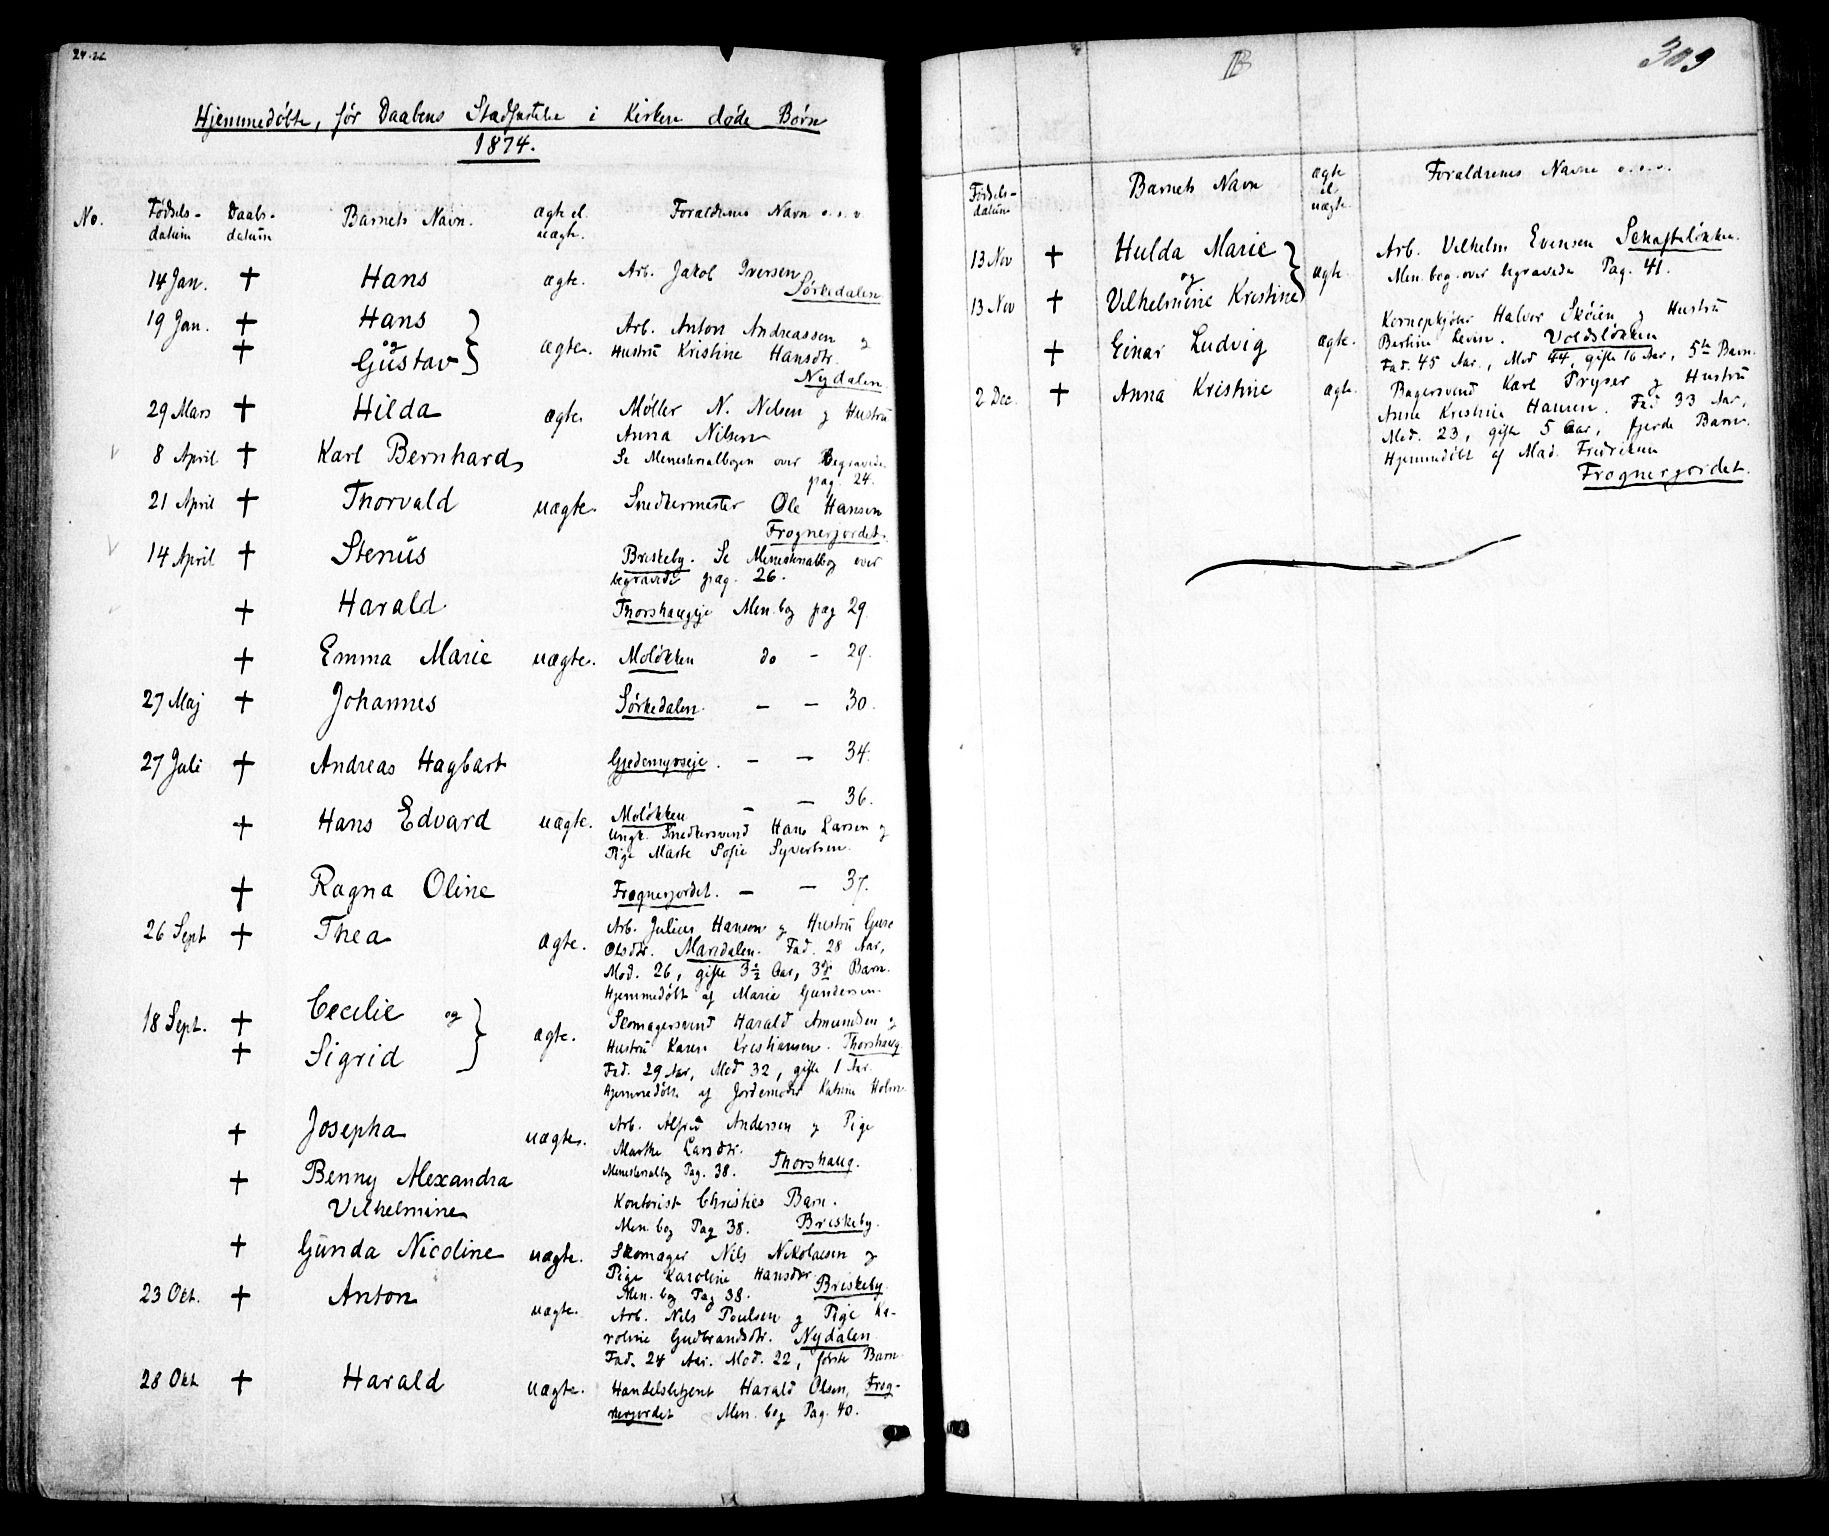 Hjemmedøbte, før Daabens Stadfæstelse i Kirken døde Børn
1874.
No.
Fødsels-
datum
Daabs-
datum
Barnets Navn.
ægte el.
uægte.
Forældrenes Navn o.s.v.
14 Jan. † Hans ægte. Arb. Jakob Iversen
Sørkedalen
19 Jan. † Hans
og
† Gustav ægte. Arb. Anton Andreassen og
Hustru Kristine Hansdtr.
Nydalen
29 Mars † Hilda ægte. Møller N. Nilsen og Hustru
Anna Nilsen
8 April † Karl Bernhard Se Ministerialbogen over Begravede
pag. 24.
21 April † Thorvald uægte. Snedkermester Ole Hansen
Frognerjordet.
14 April † Stenüs Briskeby. Se Ministerialbog over
begravede pag. 26.
† Harald Thorshaugeje Min. bog pag 29.
† Emma Marie uægte. Moløkken do - 29.
27 Maj † Johannes Sørkedalen. — — 30.
27 Juli † Andreas Hagbart Gjedemyrseje. — — 34.
† Hans Edvard uægte. Moløkken — — 36.
Ungk. Snedkersvend Hans Larsen og
Pige Marte Sofie Syvertsen.
† Ragna Oline Frognerjordet. — — 37.
26 Sept † Thea ægte. Arb. Julius Hansen og Hustru
Olsdtr. Maridalen. Fad. 28 Aar,
Mod. 26, gifte 3½ Aar, 3die Barn.
Hjemmedøbt af Marie Gundersen.
18 Sept. † Cecilie og
† Sigrid ægte. Skomagersvend Harald Amundsen og
Hustru Karen Kristiansen. Thorshaug
Fad. 29 Aar, Mod 32, gifte 1 Aar.
Hjemmedøbte af Jordemoder Katrine Holm
† Josepha uægte. Arb. Alfred Andersen og Pige
Marthe Larsdtr.
Ministerialbog Pag. 38. Thorshaug.
† Benny Alexandra
Vilhelmine
Kontorist Christies Barn.
Min. bog Pag 38. Briskeby.
† Gunda Nicoline uægte. Skomager Nils Nikolaisen og
Pige Karoline Hansdtr
Min. bog Pag 38. Briskeby
23 Okt. † Anton uægte. Arb. Nils Poulsen og Pige Ka-
roline Gudbrandsdtr. Nydalen
Fad. 24 Aar. Mod. 22, første Barn
28 Okt † Harald uægte. Handelsbetjent Harald Olsen, Frog-
nerjordet Min. bog Pag. 40.
B
309
Fødsels-
datum
Barnets Navn
ægte
el.
uægte.
Forældrenes Navne o.s.v.
13 Nov † Hulda Marie
og
13 Nov † Vilhelmine Kristine
ægte. Arb. Vilhelm Evensen Schafteløkken.
Min. bog over begravede Pag. 41.
† Einar Ludvig ægte. Halvor Skøien og Hustru
Bertine Levin. Voldsløkken
Fad. 45 Aar, Mod 44, gifte 16 Aar, 5te Barn.
2 Dec. † Anna Kristine ægte. Bagersvend Karl Pryser og Hustru
Anne Kristine Hansen. Fad 33 Aar,
Mod. 23, gifte 5 Aar, fjerde Barn.
Hjemmedøbt af Mad. Fredriksen
Frognerjordet.